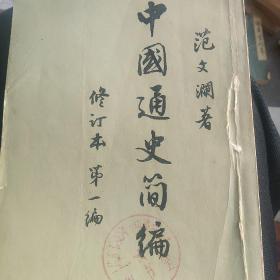 范文瀾著
中國通史簡編
修订本 第一编